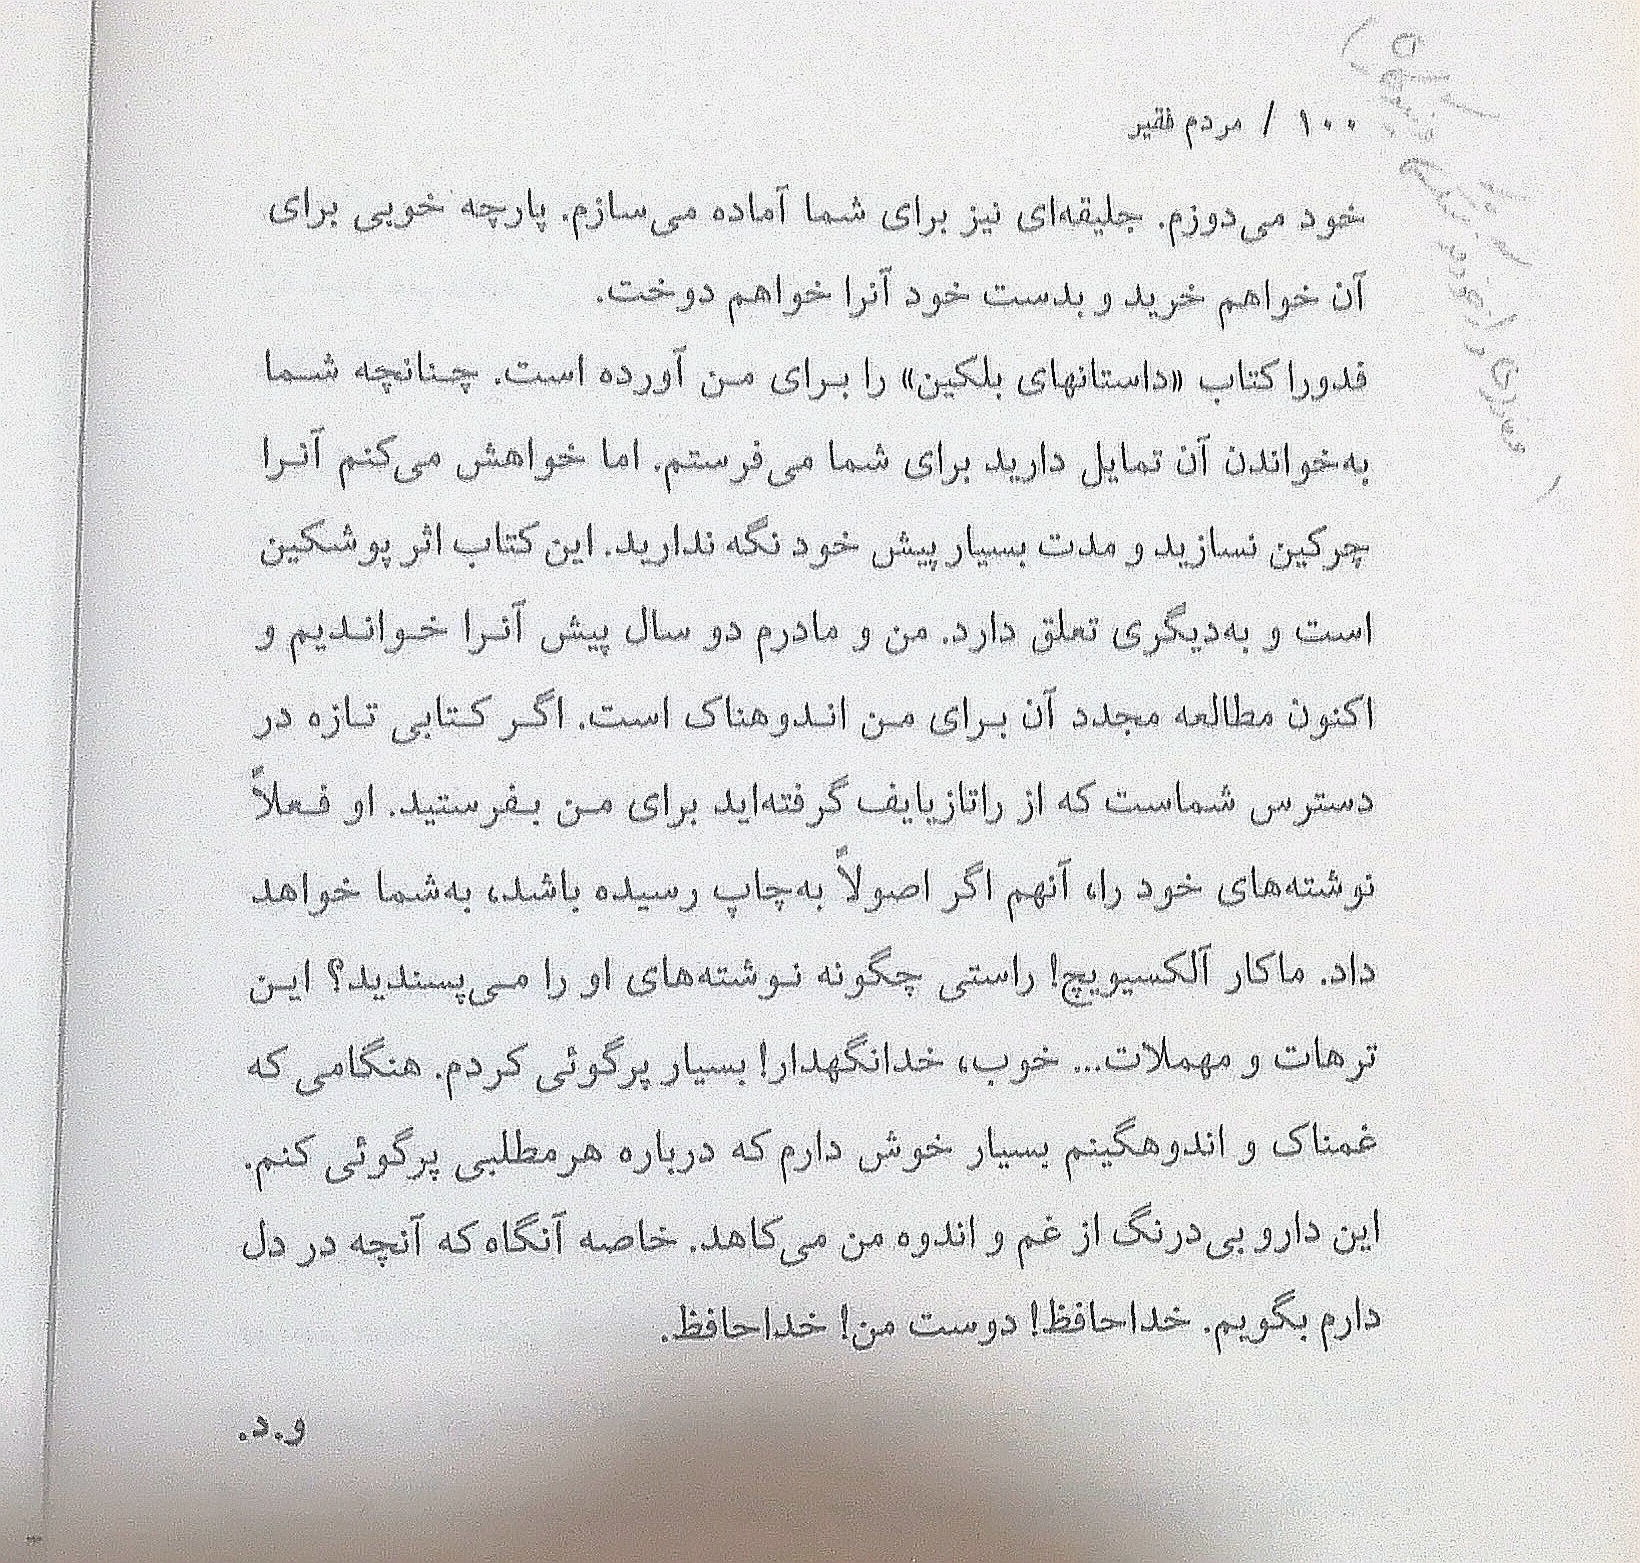 ۱۰۰ / مردم فقیر
خود می‌دوزم. جلیقه‌ای نیز برای شما آماده می‌سازم. پارچه خوبی برای
آن خواهم خرید و بدست خود آنرا خواهم دوخت.
فدورا کتاب «داستانهای بلکین» را برای من آورده است. چنانچه شما
به‌خواندن آن تمایل دارید برای شما می‌فرستم. اما خواهش می‌کنم آنرا
چرکین نسازید و مدت بسیار پیش خود نگه ندارید. این کتاب اثر پوشکین
است و به‌دیگری تعلق دارد. من و مادرم دو سال پیش آنرا خواندیم و
اکنون مطالعه مجدد آن برای من اندوهناک است. اگر کتابی تازه در
دسترس شماست که از راتازیایف گرفته‌اید برای من بفرستید. او فعلاً
نوشته‌های خود را، آنهم اگر اصولاً به‌چاپ رسیده باشد، به‌شما خواهد
داد. ماکار آلکسیویچ! راستی چگونه نوشته‌های او را می‌پسندید؟ این
ترهات و مهملات... خوب، خدانگهدار! بسیار پرگوئی کردم. هنگامی که
غمناک و اندوهگینم بسیار خوش دارم که درباره هرمطلبی پرگوئی کنم.
این دارو بی‌درنگ از غم و اندوه من می‌کاهد. خاصه آنگاه که آنچه در دل
دارم بگویم. خداحافظ! دوست من! خداحافظ.
و.د.